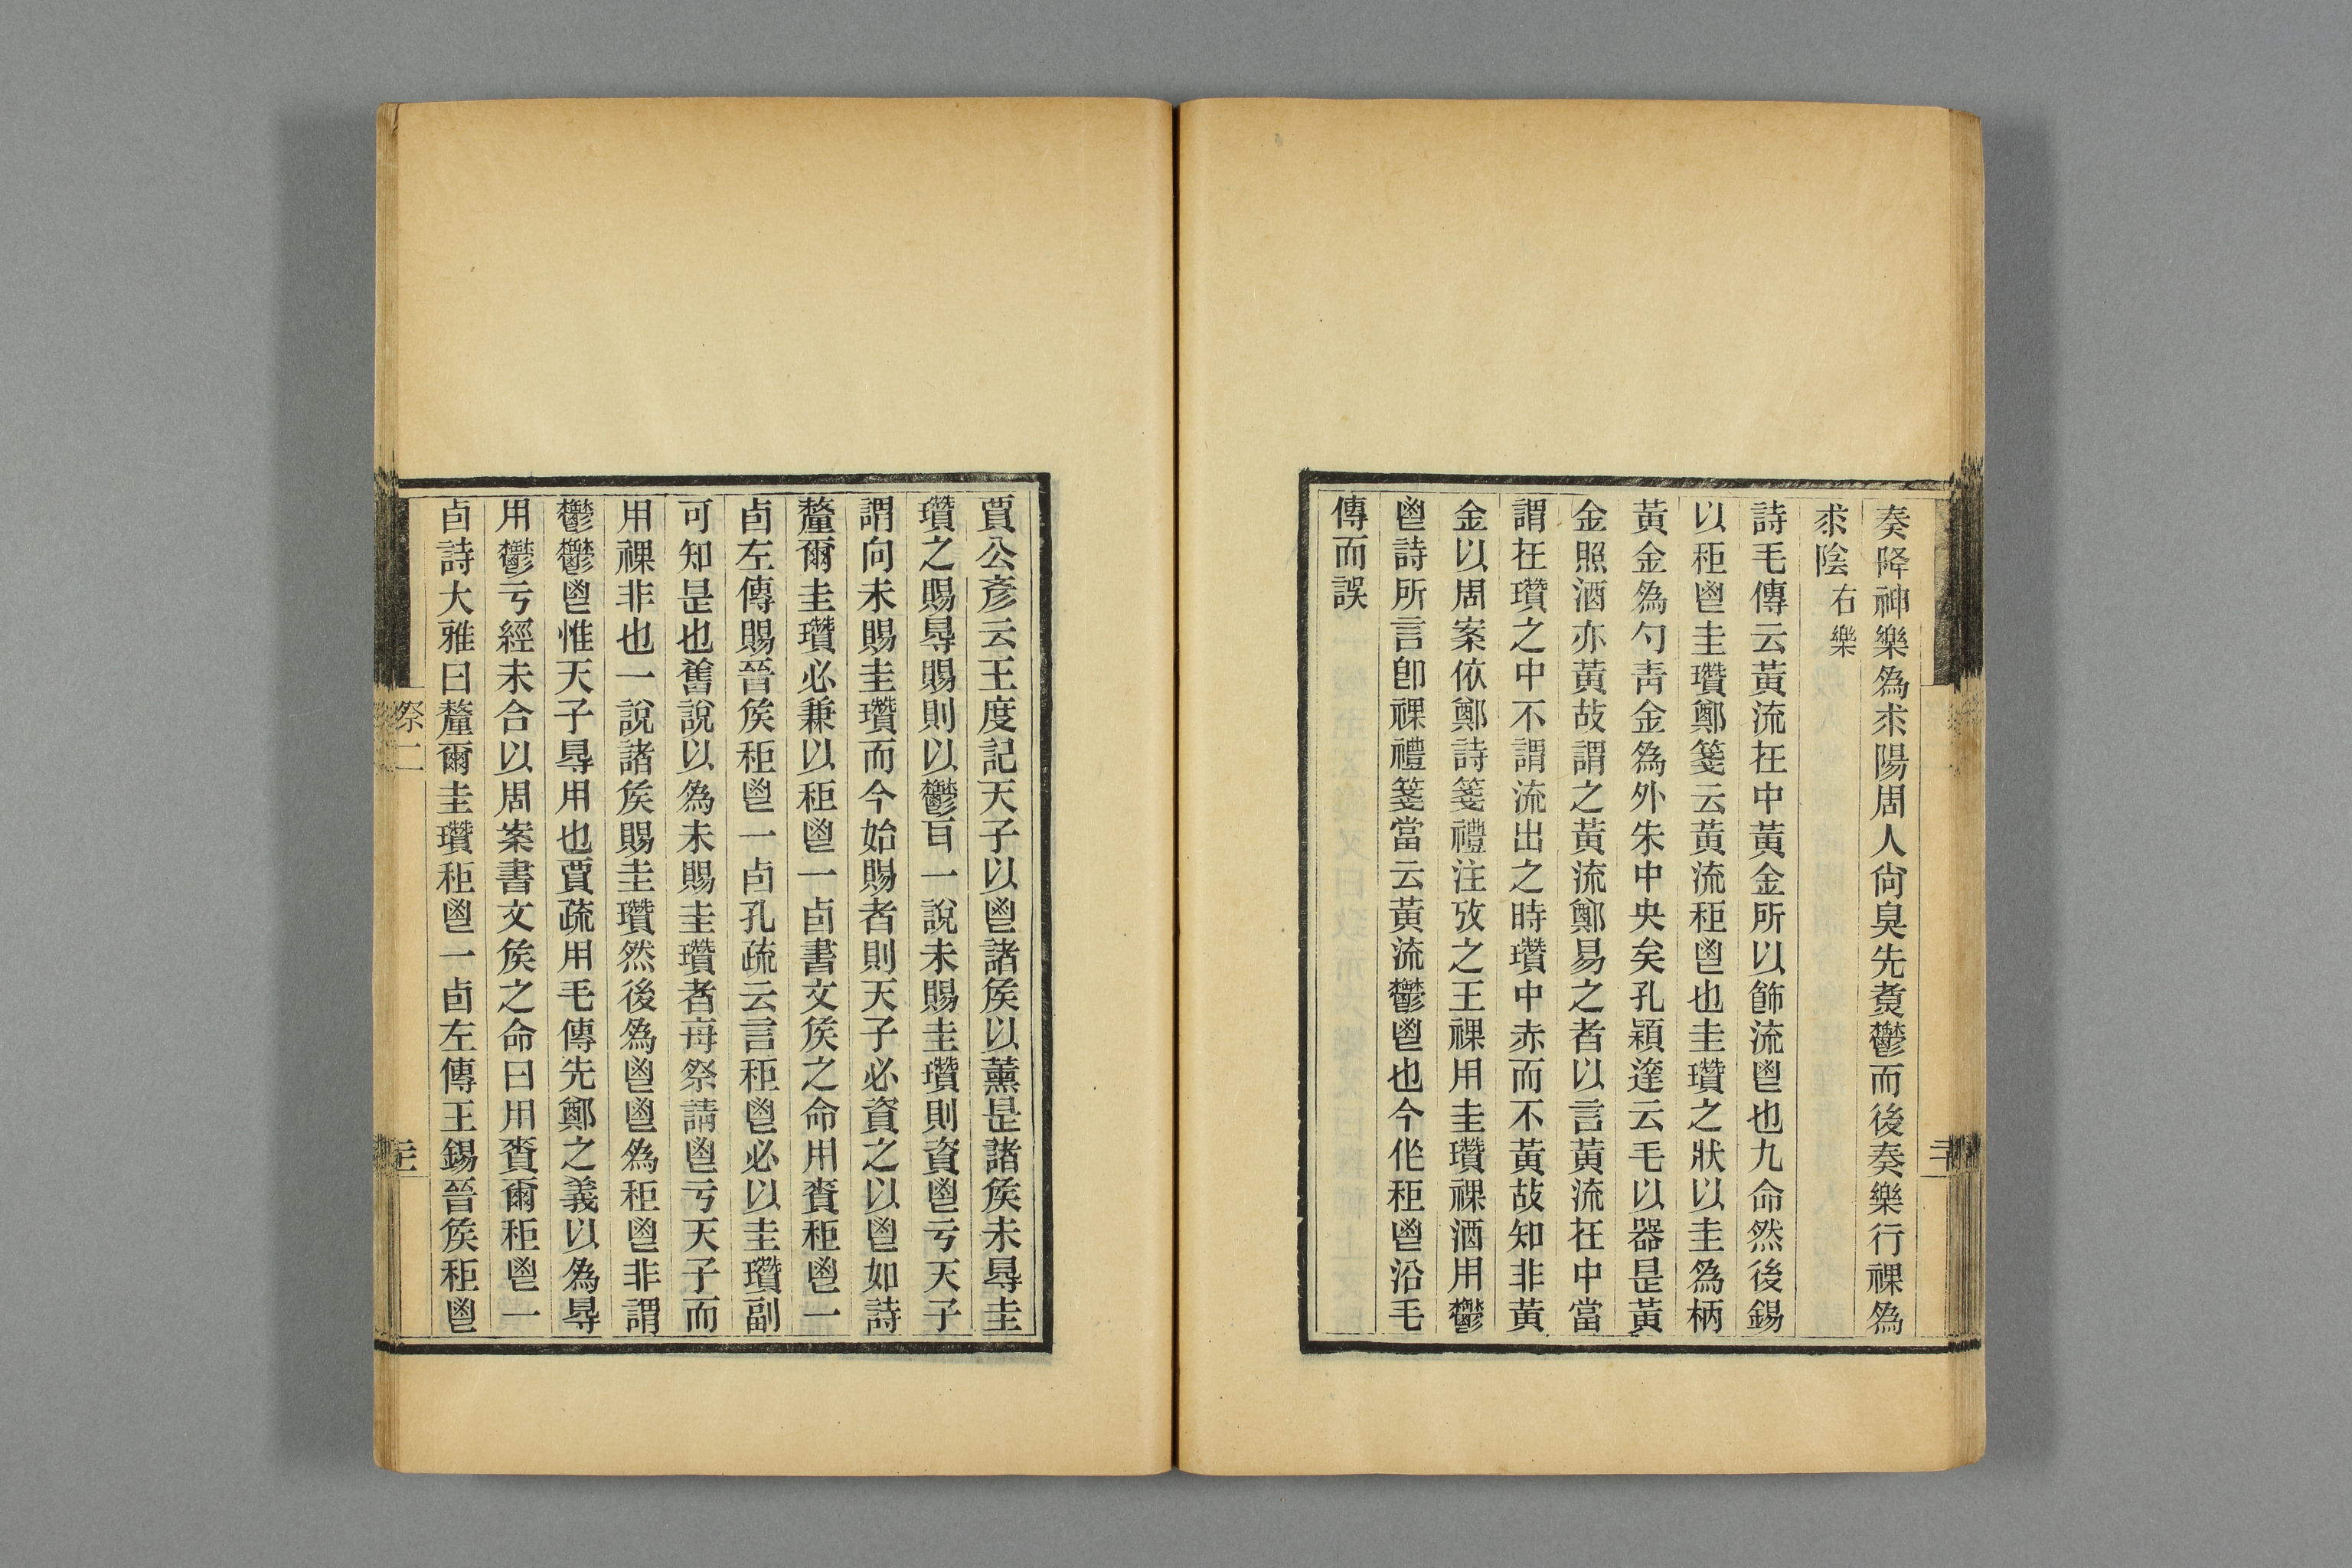 奏降神樂爲求陽周人尙臭先煑鬱而後奏樂行祼爲
求陰右樂
詩毛傳云黃流在中黃金所以飾流鬯也九命然後錫
以秬鬯圭瓚鄭箋云黃流秬鬯也圭瓚之狀以圭爲柄
黃金爲勺靑金爲外朱中央矣孔穎達云毛以器是黃
金照酒亦黃故謂之黃流鄭易之者以言黃流在中當
謂在瓚之中不謂流出之時瓚中赤而不黃故知非黃
金以周案依鄭詩箋禮注攷之王祼用圭瓚祼酒用鬱
鬯詩所言卽祼禮箋當云黃流鬱鬯也今作秬鬯沿毛
傳而誤
三十
賈公彥云王度記天子以鬯諸矦以薰是諸矦未㝵圭
瓚之賜㝵賜則以鬱百一說未賜圭瓚則資鬯亏天子
謂向未賜圭瓚而今始賜者則天子必資之以鬯如詩
釐爾圭瓚必兼以秬鬯一卣書文矦之命用賚秬鬯一
卣左傳賜晉矦秬鬯一卣孔疏云言秬鬯必以圭瓚副
可知是也舊說以爲未賜圭瓚者每祭請鬯亏天子而
用祼非也一說諸矦賜圭瓚然後爲鬯鬯爲秬鬯非謂
鬱鬱鬯惟天子㝵用也賈疏用毛傳先鄭之義以爲㝵
用鬱亏經未合以周案書文矦之命曰用賚爾秬鬯一
卣詩大雅曰釐爾圭瓚秬鬯一卣左傳王錫晉矦秬鬯
祭二